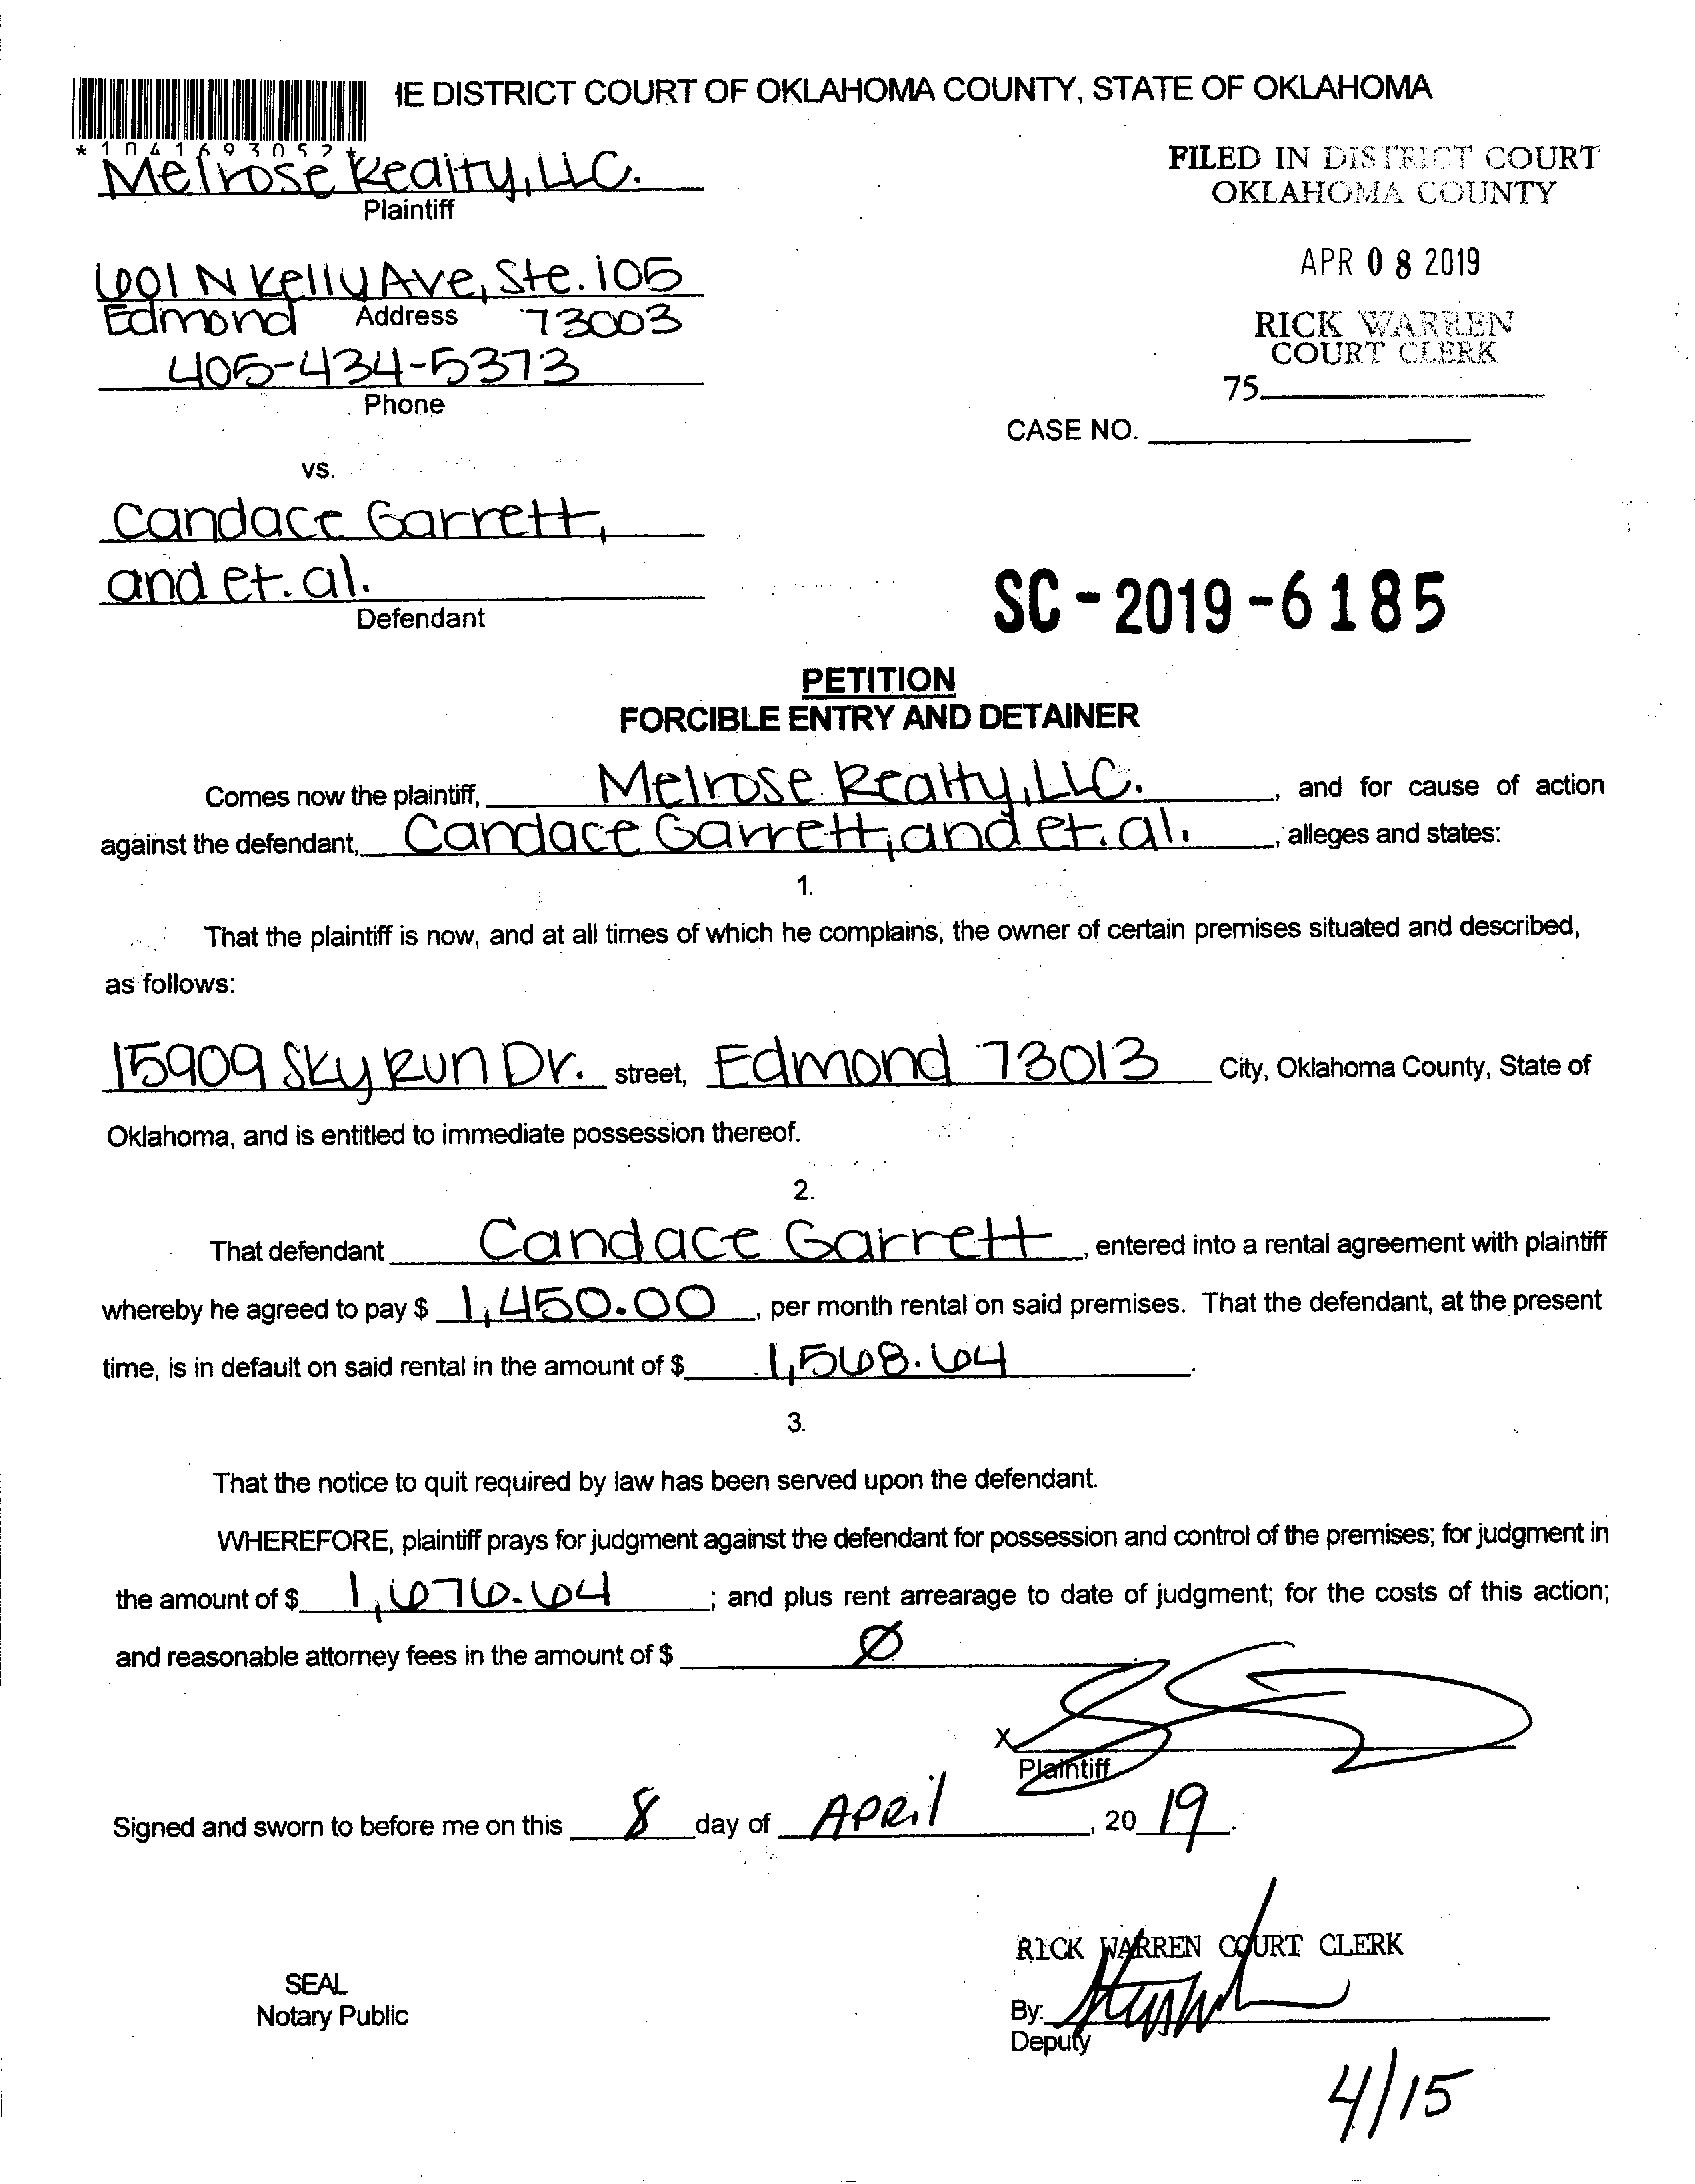 IE DISTRICT COURT OF OKLAHOMA COUNTY, STATE OF OKLAHOMA
*1041693052*
Melrose Realty, LLC.
Plaintiff
FILED IN DISTRICT COURT
OKLAHOMA COUNTY
601 N Kelly Ave, Ste. 105
Address
Edmond 73003
APR 08 2019
405-434-5373
Phone
RICK WARREN
COURT CLERK
75
CASE NO.
vs.
Candace Garrett,
and et. al.
Defendant
SC-2019-6185
PETITION
FORCIBLE ENTRY AND DETAINER
Comes now the plaintiff, Melrose Realty, LLC. , and for cause of action
against the defendant, Candace Garrett, and et. al. , alleges and states:
1.
That the plaintiff is now, and at all times of which he complains, the owner of certain premises situated and described,
as follows:
15909 Sky Run Dr. street, Edmond 73013 City, Oklahoma County, State of
Oklahoma, and is entitled to immediate possession thereof.
2.
That defendant Candace Garrett , entered into a rental agreement with plaintiff
whereby he agreed to pay $ 1,450.00 , per month rental on said premises. That the defendant, at the present
time, is in default on said rental in the amount of $ 1,568.64 .
3.
That the notice to quit required by law has been served upon the defendant.
WHEREFORE, plaintiff prays for judgment against the defendant for possession and control of the premises; for judgment in
the amount of $ 1,676.64 ; and plus rent arrearage to date of judgment; for the costs of this action;
and reasonable attorney fees in the amount of $ Ø
X
Plaintiff
Signed and sworn to before me on this 8 day of April , 20 19 .
RICK WARREN COURT CLERK
SEAL
Notary Public
By:
Deputy
4/15